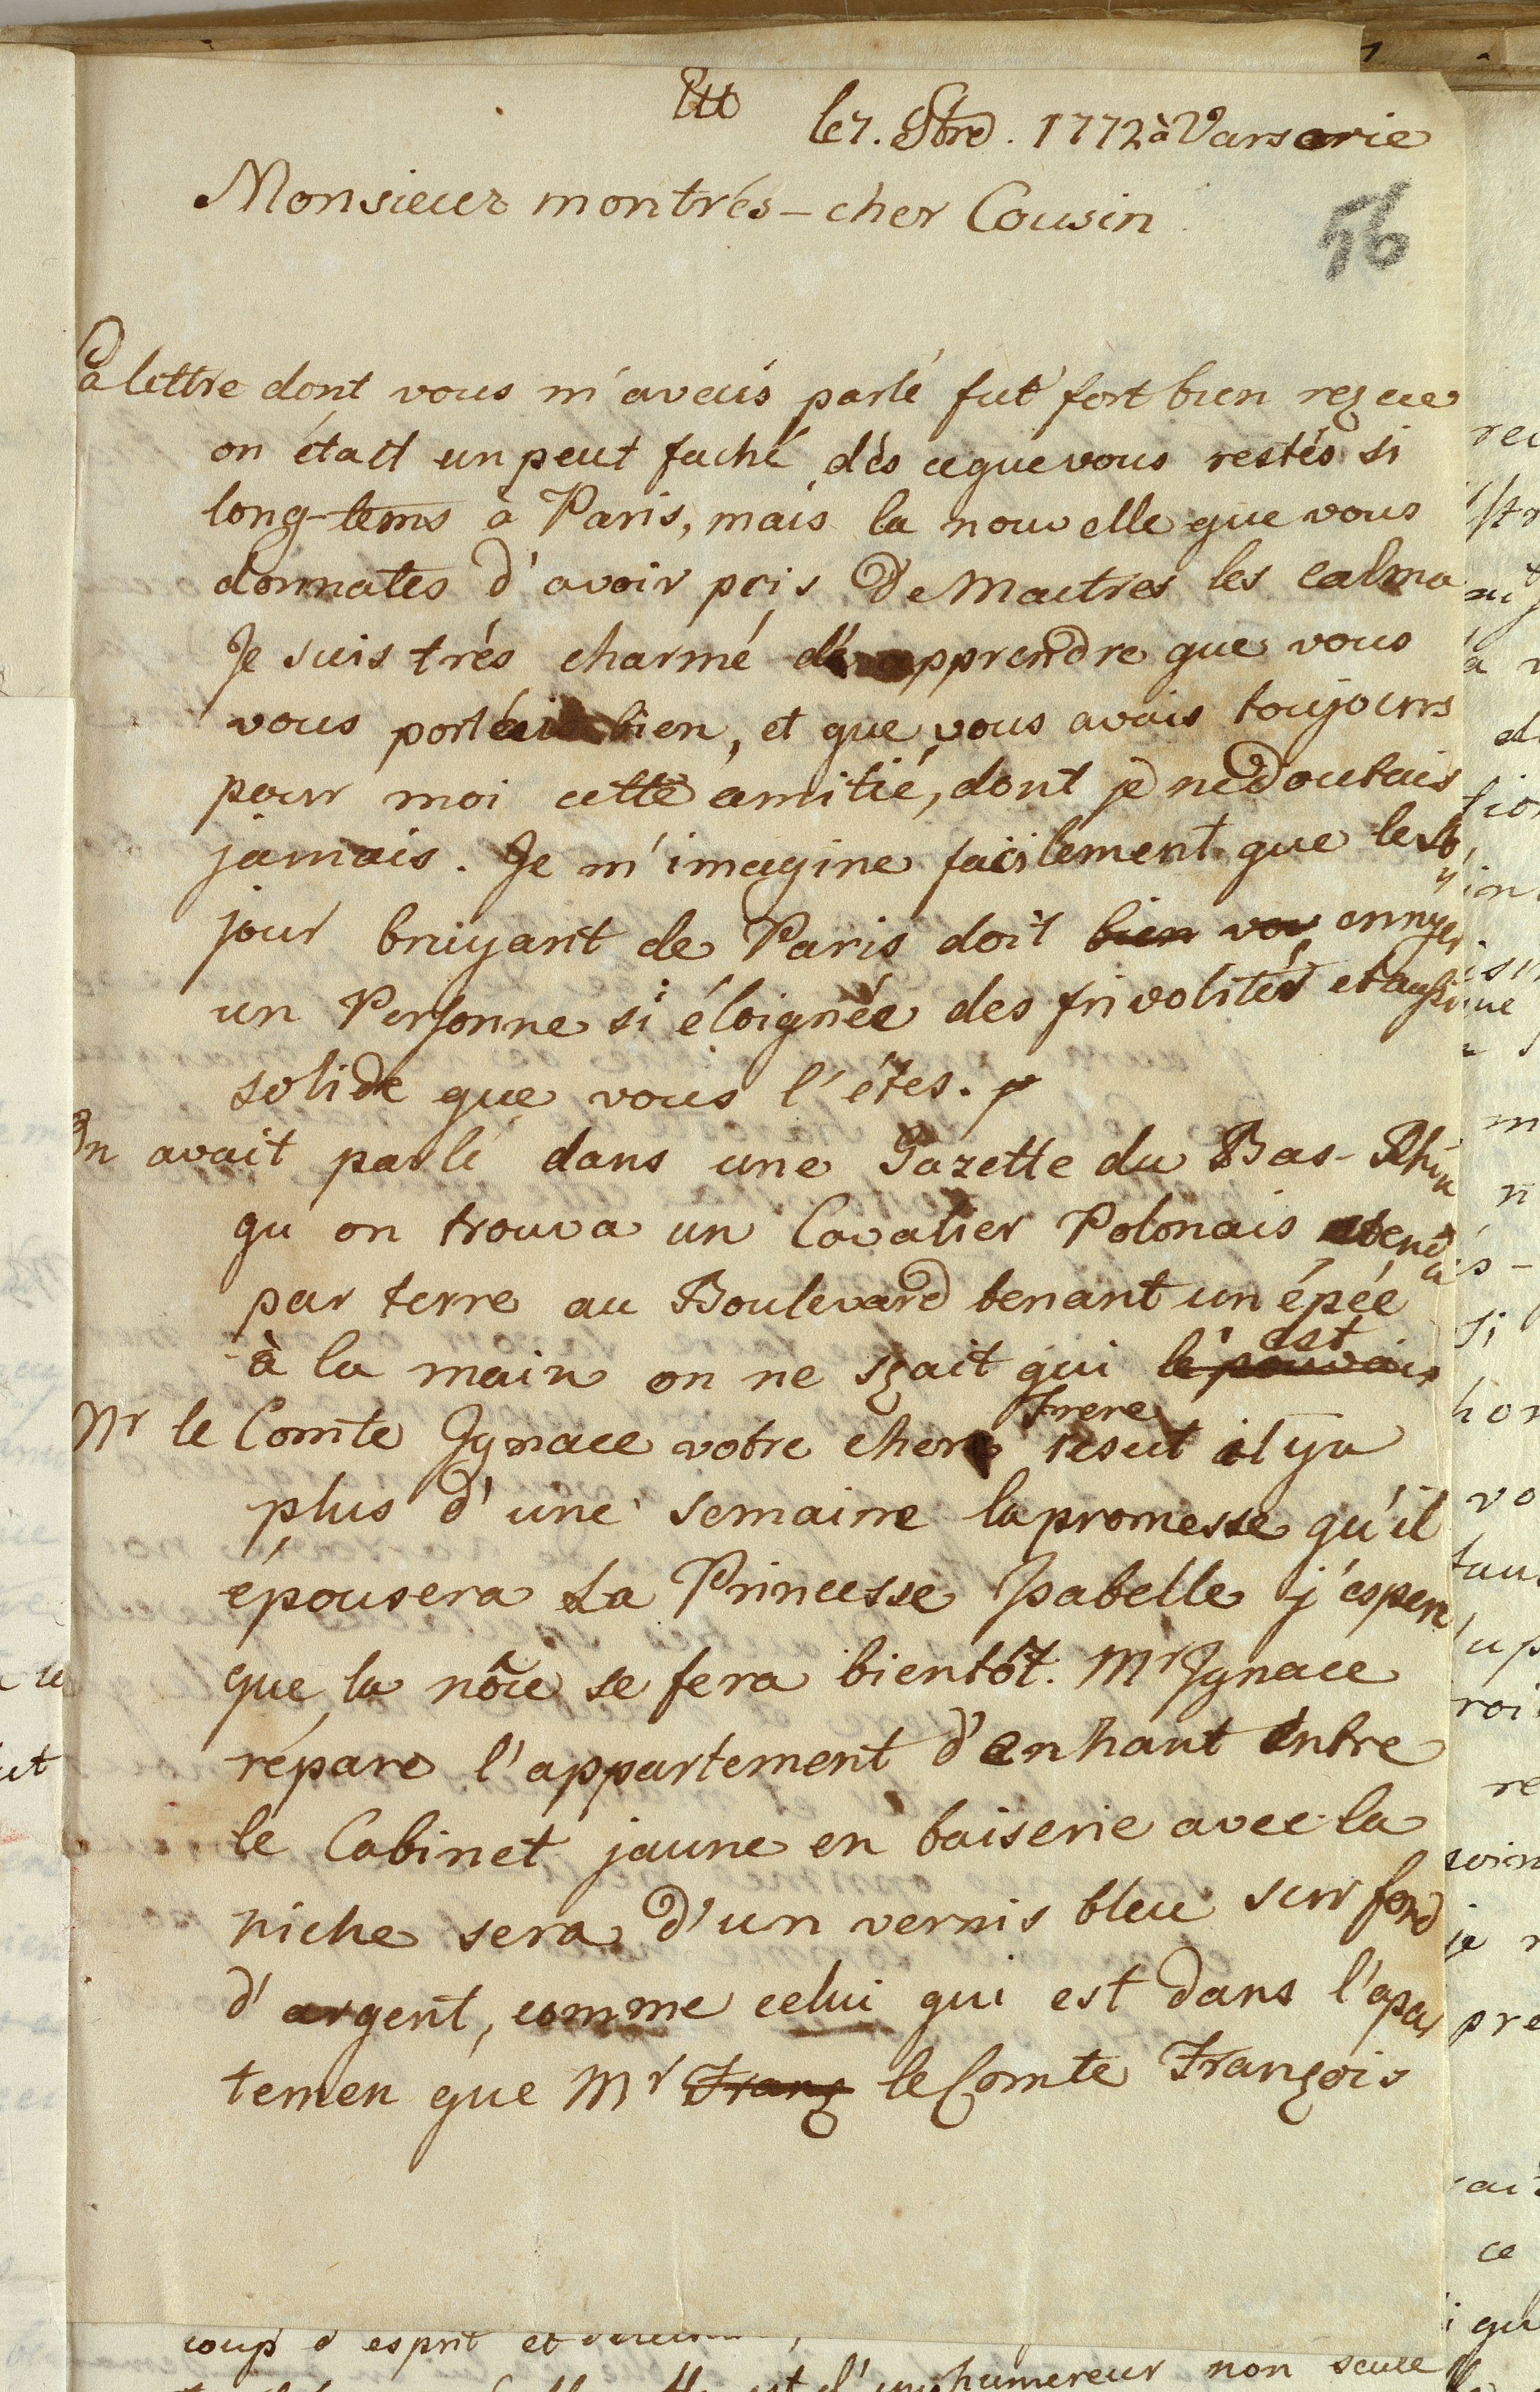 le 7. 8bre. 1772 à Varsovie
Monsieur montrés-cher Cousin
56
La lettre dont vous m'avais parlé fut fort bien rezue
on était un peut faché dès ceque vous restés si
long-tems à Paris, mais la nouvelle que vous
donnates d'avoir pris De Maitres les calma
Je suis trés charmé d'apprendre que vous
vous portés bien, et que vous avais toujours
pour moi cette amitié, dont je ne doutais
jamais. Je m'imagine facilement que le sé
jour bruyant de Paris doit bien vou ennyer
un Personne si éloignée des frivolités et aussi
solide que vous l'étes.
On avait parlé dans une Gazette du Bas-Rhin
qu on trouva un Cavalier Polonais etendu
par terre au Boulevard tenant un épée
à la main on ne szait qui le pouvais est
Mr le Comte Ignace votre cher Frere resut il ya
plus d'une semaine la promesse qu'il
épousera La Princesse Isabelle j'espere
que la nôce se fera bientôt. Mr Ignace
répare l'appartement d'enhaut entre
le Cabinet jaune en baiserie avec la
niche sera d'un vernis bleu sur fond
d'argent, comme celui qui est dans l'apar
temen que Mr Franz le Comte Franzois
coup d esprit et
humereur non seule